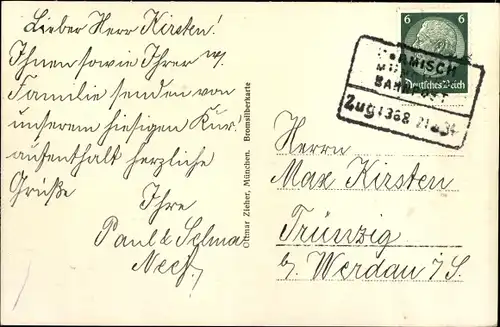 Lieber Herr Kirsten!
Ihnen sowie Ihrer w.
Familie senden von
unserem hiesigen Kur-
aufenthalt herzliche
Grüße
Ihre
Paul & Selma
Ottmar Zieher, München. Bromsilberkarte
6 6
Deutsches Reich
GARMISCH
MÜNCHEN
BAHNPOST
Zug 1368 21 34
Herrn
Max Kirsten
Trünzig
b. Werdau i/S.